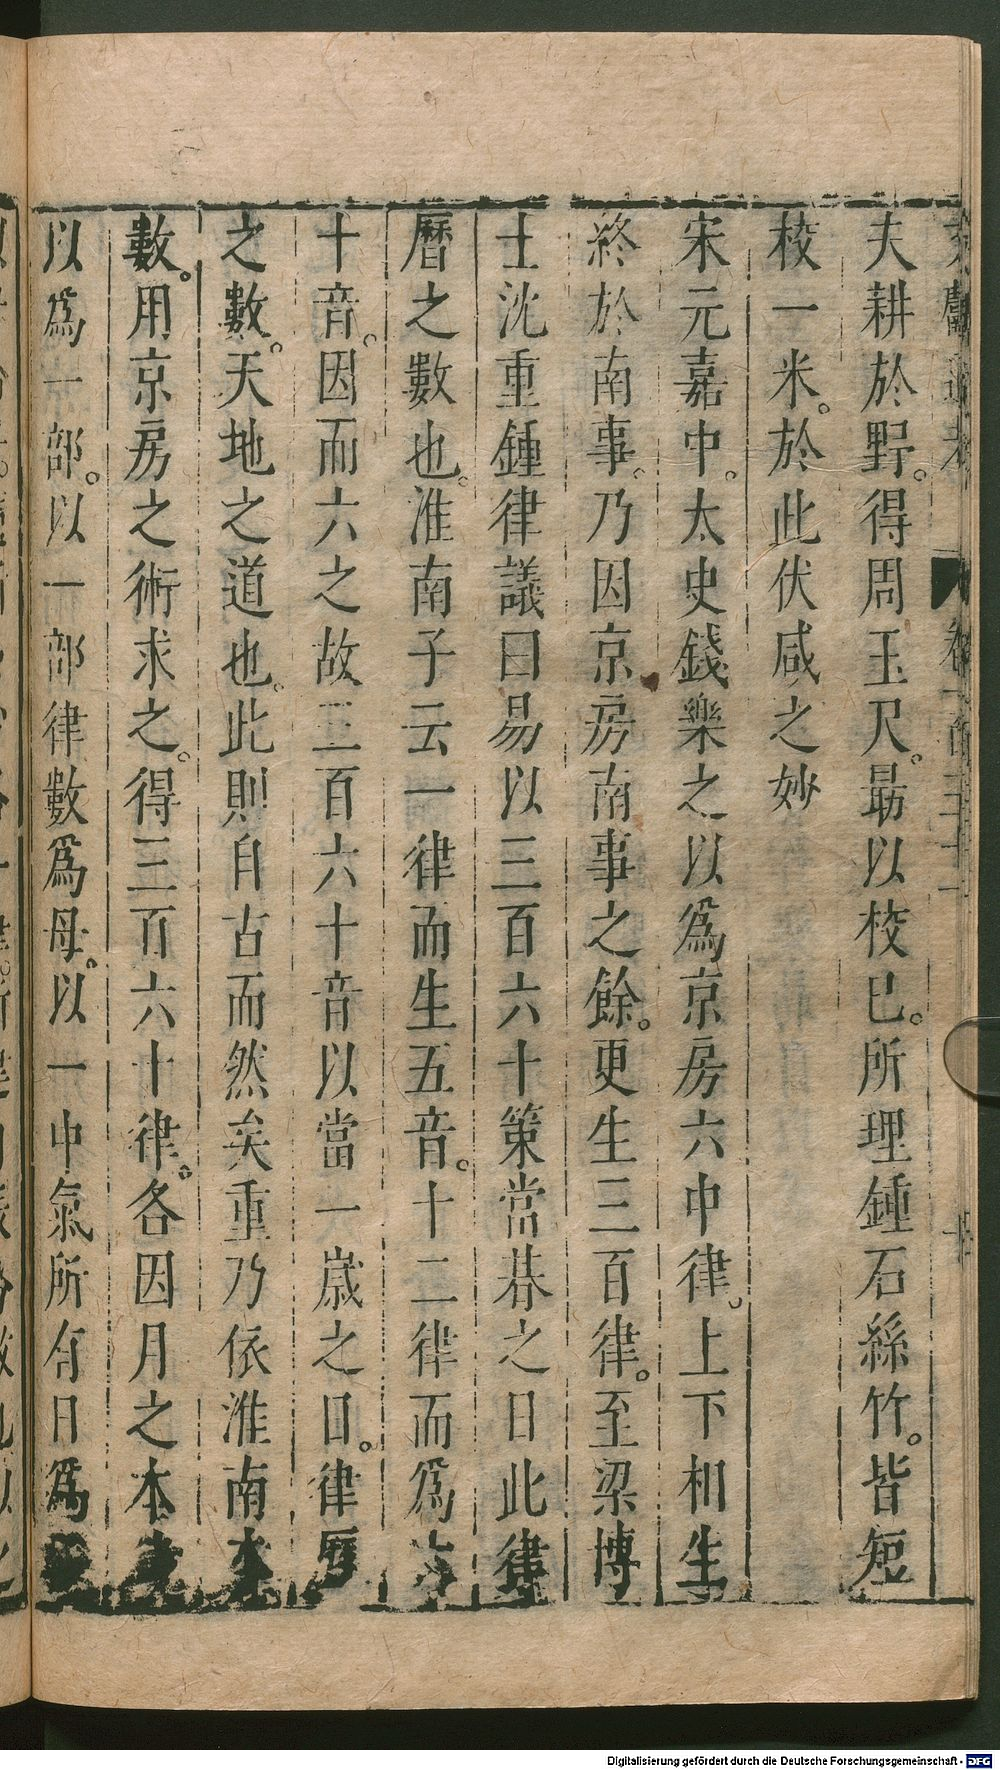 夫耕於野。得周玉尺。最以校已。所理鍾石絲竹。皆短
校一米。於此伏咸之妙
宋元嘉中。太史錢樂之以爲京房六中律。上下相生
終於南事。乃因京房南事之餘。更生三百律。至梁博
士沈重鍾律議曰易以三百六十策當朞之日此律
曆之數也。淮南子云一律而生五音。十二律而爲六
十音。因而六之故三百六十音以當一歲之日。律曆
之數。天地之道也。此則自古而然矣重乃依淮南本
數。用京房之術求之。得三百六十律。各因月之本
以爲一部。以一部律數爲母。以一中氣所有日爲
Digitalisierung gefördert durch die Deutsche Forschungsgemeinschaft - DFG